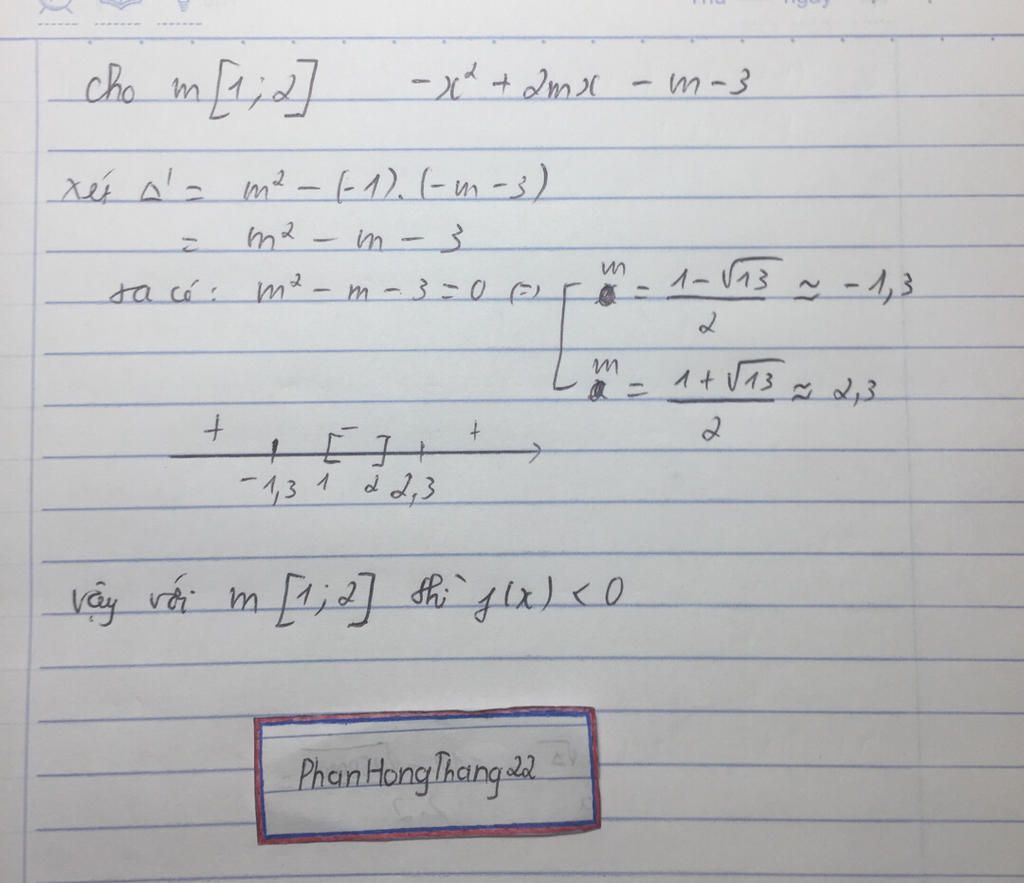 Thứ ngày
Cho m [1;2] -x² + 2mx - m - 3
xét Δ' = m² - (-1).(-m - 3)
= m² - m - 3
ta có: m² - m - 3 = 0 (=) [ m = (1 - √13)/2 ≈ -1,3
m = (1 + √13)/2 ≈ 2,3
+ [ - ] +
-1,3 1 2 2,3
vậy với m [1;2] thì f(x) < 0
PhanHongThang22